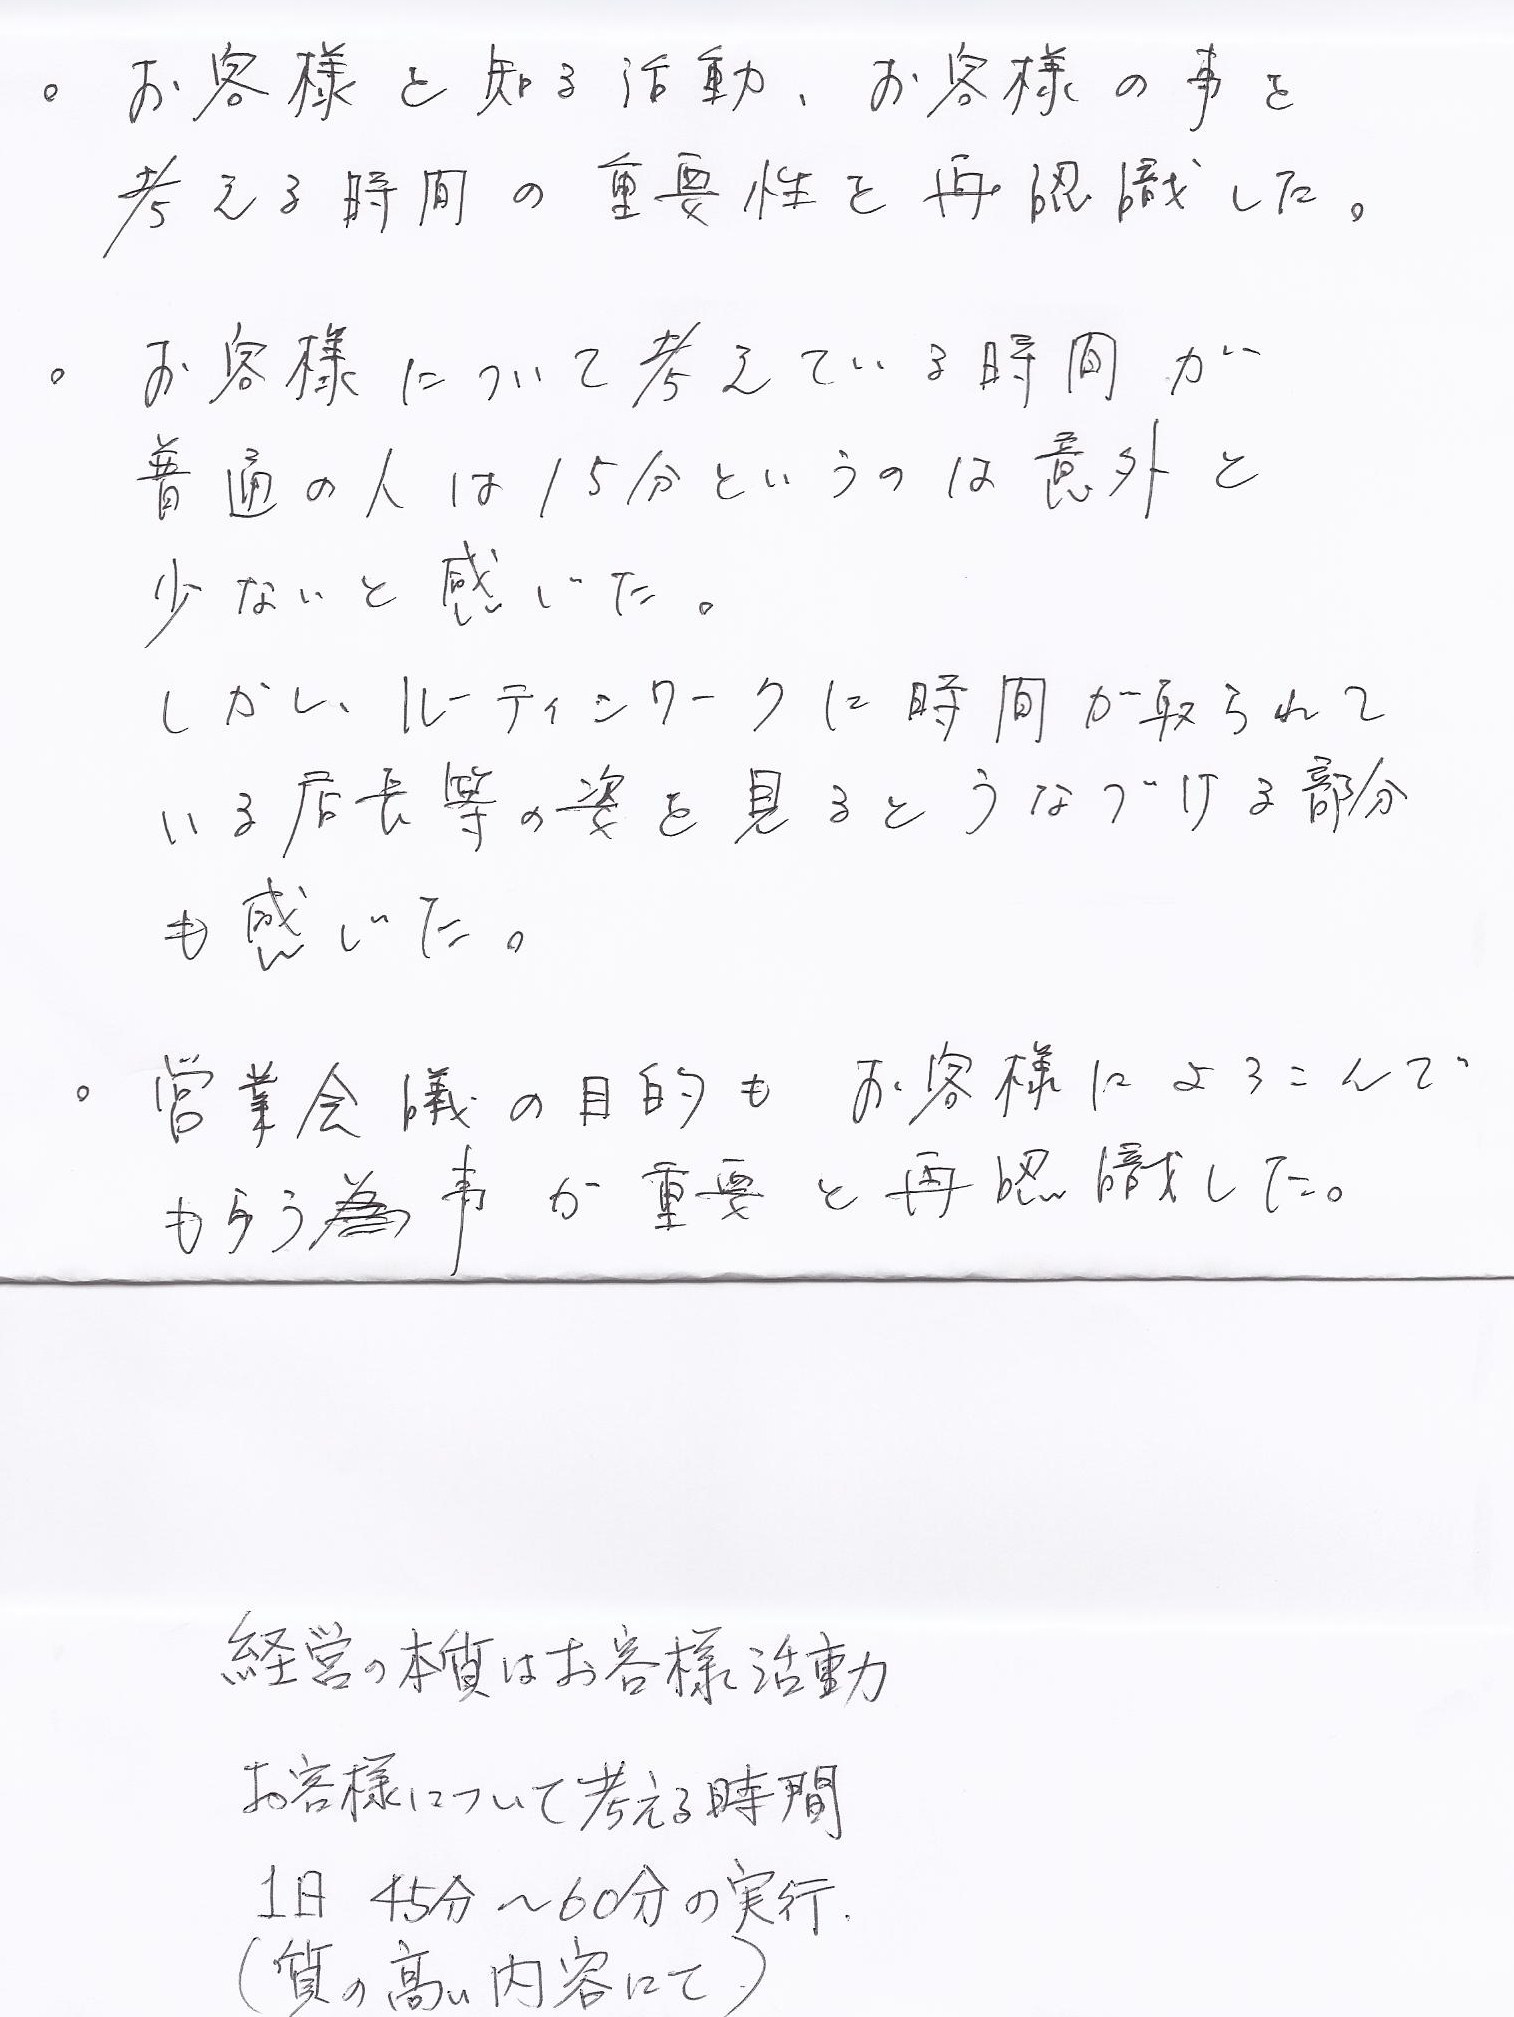 。お客様を知る活動、お客様の事を
考える時間の重要性を再認識した。
。お客様について考えている時間が
普通の人は15分というのは意外と
少ないと感じた。
しかし、ルーティンワークに時間が取られて
いる店長等の姿を見るとうなづける部分
も感じた。
。営業会議の目的もお客様によろこんで
もらう事が重要と再認識した。
経営の本質はお客様活動
お客様について考える時間
1日 45分～60分の実行.
(質の高い内容にて)